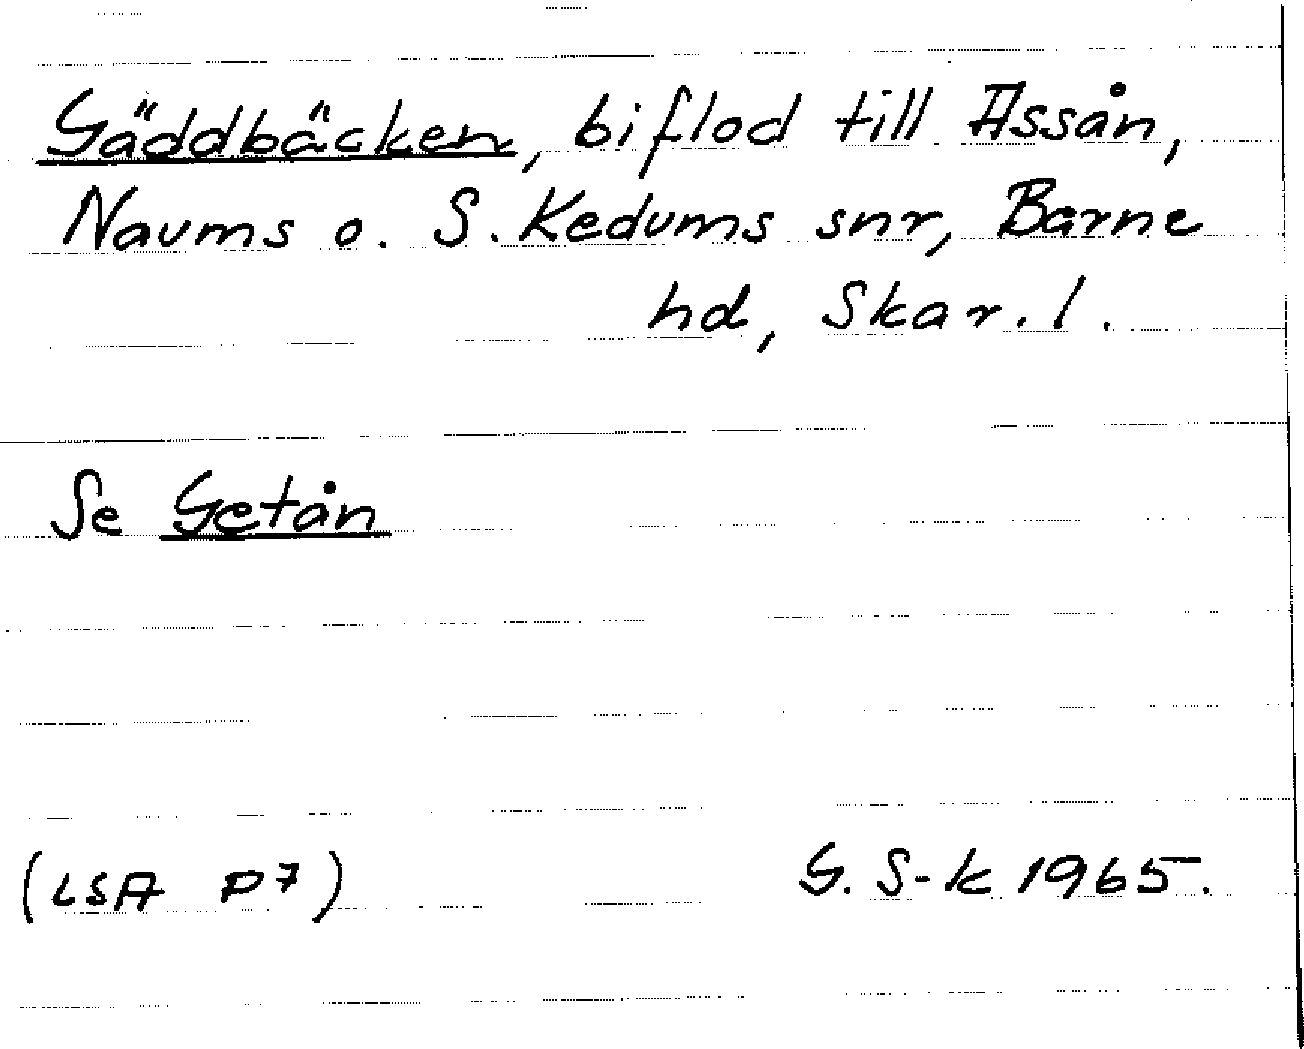 Gäddbäcken, biflod till Assån,
Naums o. S. Kedums snr, Barne
hd, Skar. l.
Se Getån
(LSA P7)
G. S-k 1965.